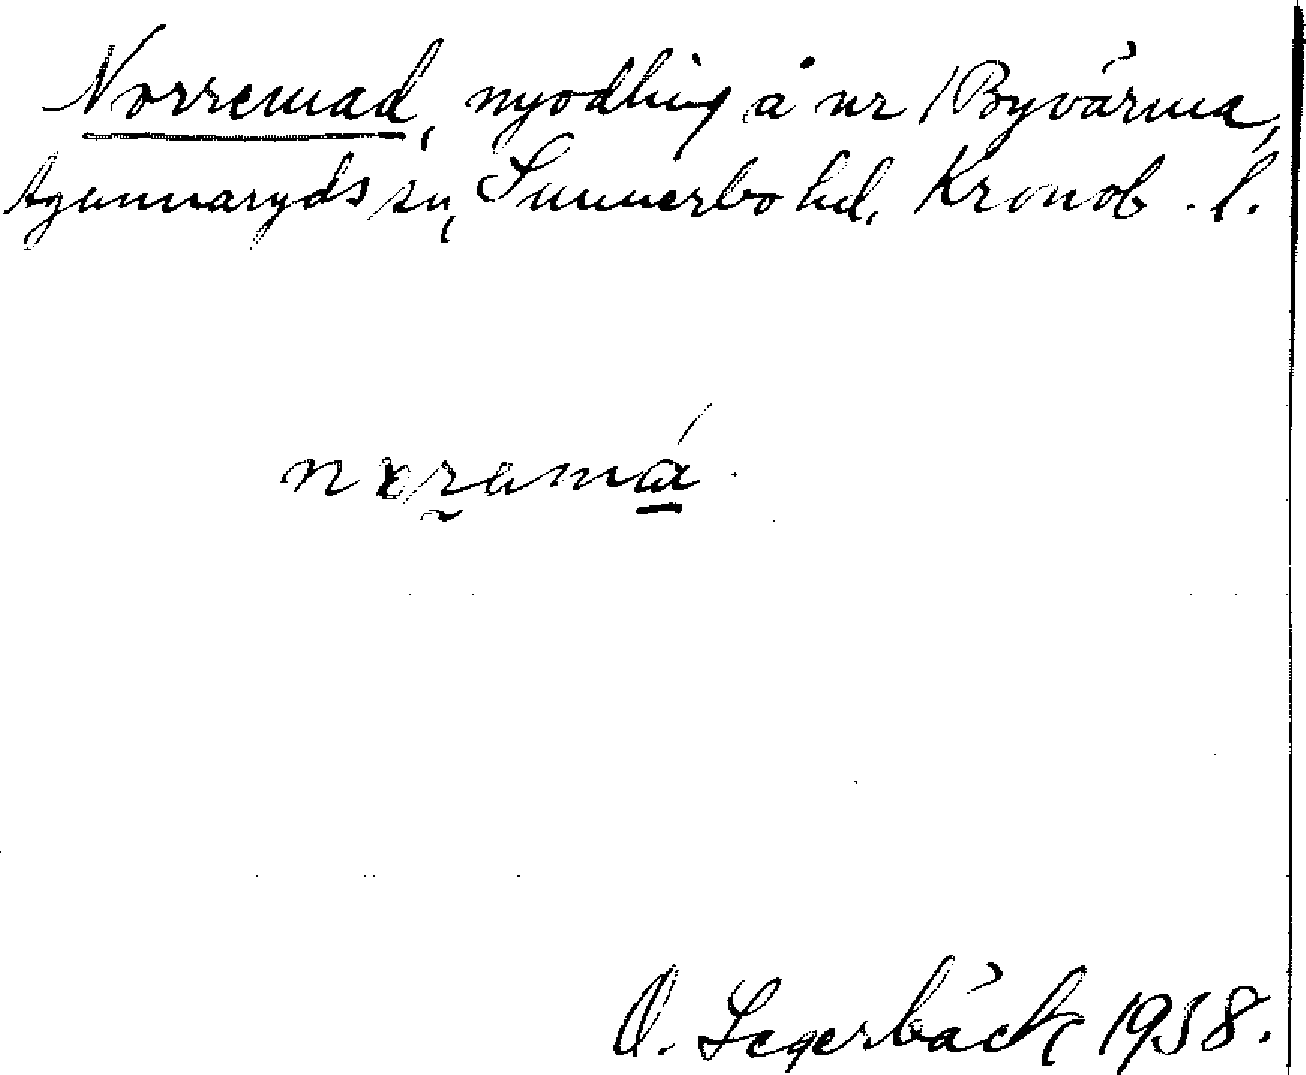 Norremad, nyodling å nr 1 Byvärma,
Agunnaryds sn, Sunnerbo hd, Kronob. l.
O. Segerbäck 1958.